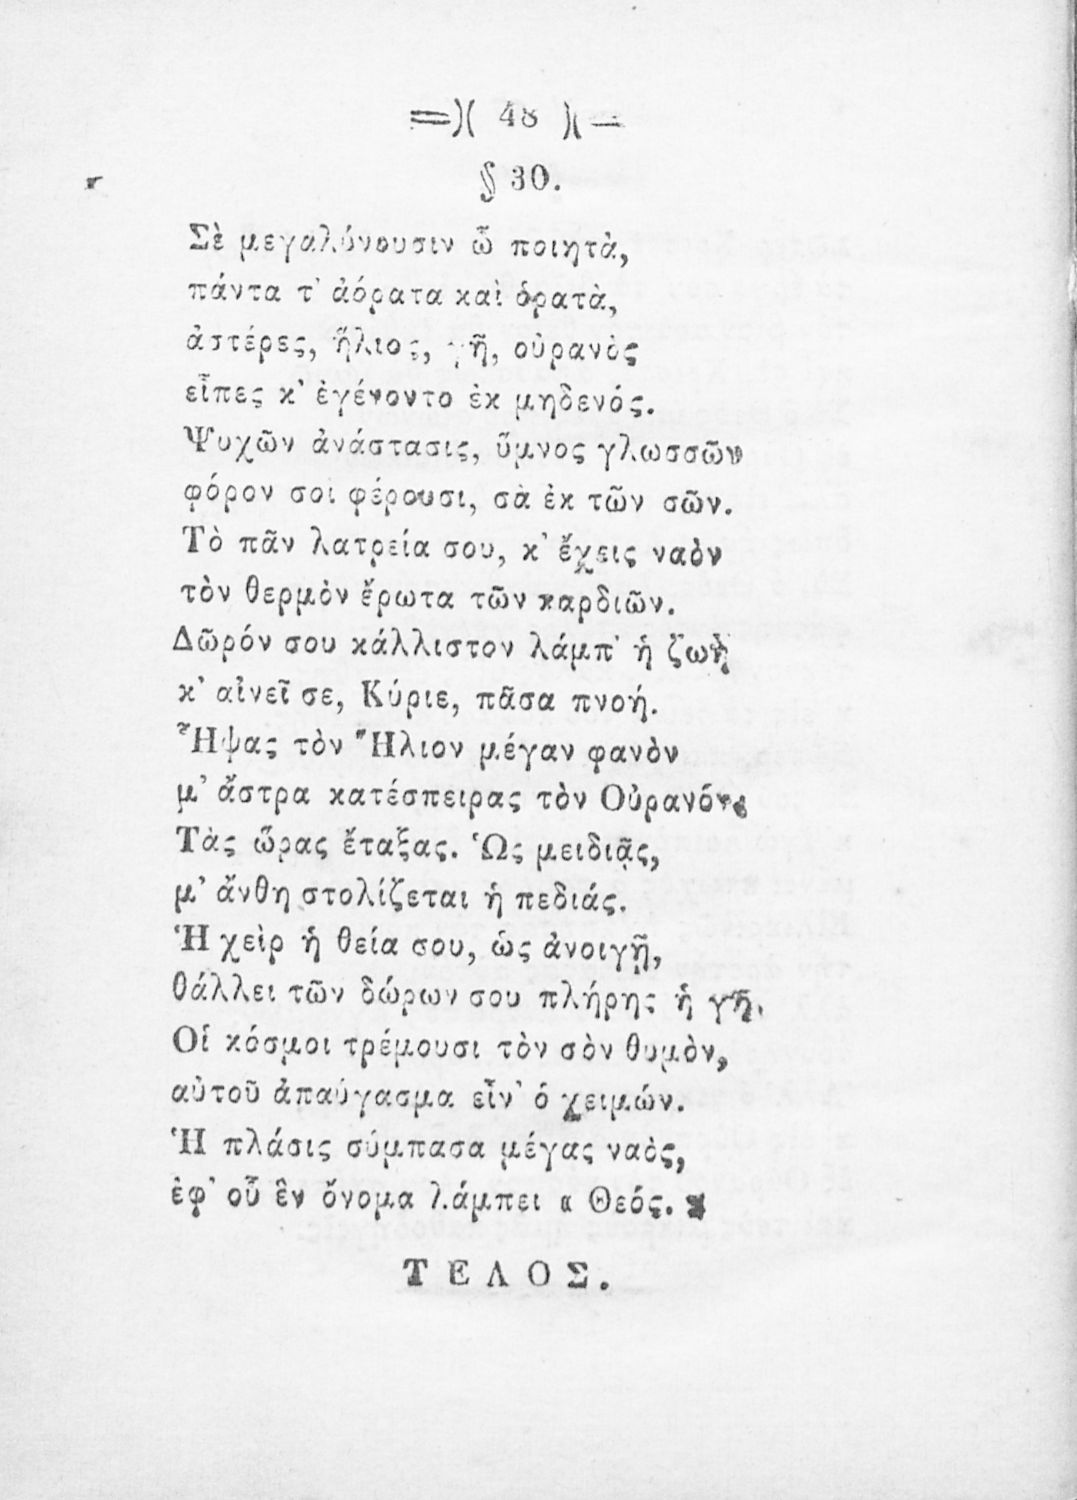 =)( 48 )(=
§ 30.
Σὲ μεγαλύνουσιν ὦ ποιητὰ,
πάντα τ' ἀόρατα καὶ ὁρατὰ,
ἀστέρες, ἥλιος, γῆ, οὐρανὸς
εἶπες κ' ἐγένοντο ἐκ μηδενός.
Ψυχῶν ἀνάστασις, ὕμνος γλωσσῶν
φόρον σοι φέρουσι, σὰ ἐκ τῶν σῶν.
Τὸ πᾶν λατρεία σου, κ' ἔχεις ναὸν
τὸν θερμὸν ἔρωτα τῶν καρδιῶν.
Δῶρόν σου κάλλιστον λάμπ' ἡ ζωὴ
κ' αἰνεῖ σε, Κύριε, πᾶσα πνοή.
Ἦψας τὸν Ἥλιον μέγαν φανὸν
μ' ἄστρα κατέσπειρας τὸν Οὐρανόν.
Τὰς ὥρας ἔταξας. Ὡς μειδιᾷς,
μ' ἄνθη στολίζεται ἡ πεδιάς.
Ἡ χεὶρ ἡ θεία σου, ὡς ἀνοιγῇ,
θάλλει τῶν δώρων σου πλήρης ἡ γῆ.
Οἱ κόσμοι τρέμουσι τὸν σὸν θυμὸν,
αὐτοῦ ἀπαύγασμα εἶν' ὁ χειμών.
Ἡ πλάσις σύμπασα μέγας ναὸς,
ἐφ' οὗ ἓν ὄνομα λάμπει « Θεός. »
ΤΕΛΟΣ.